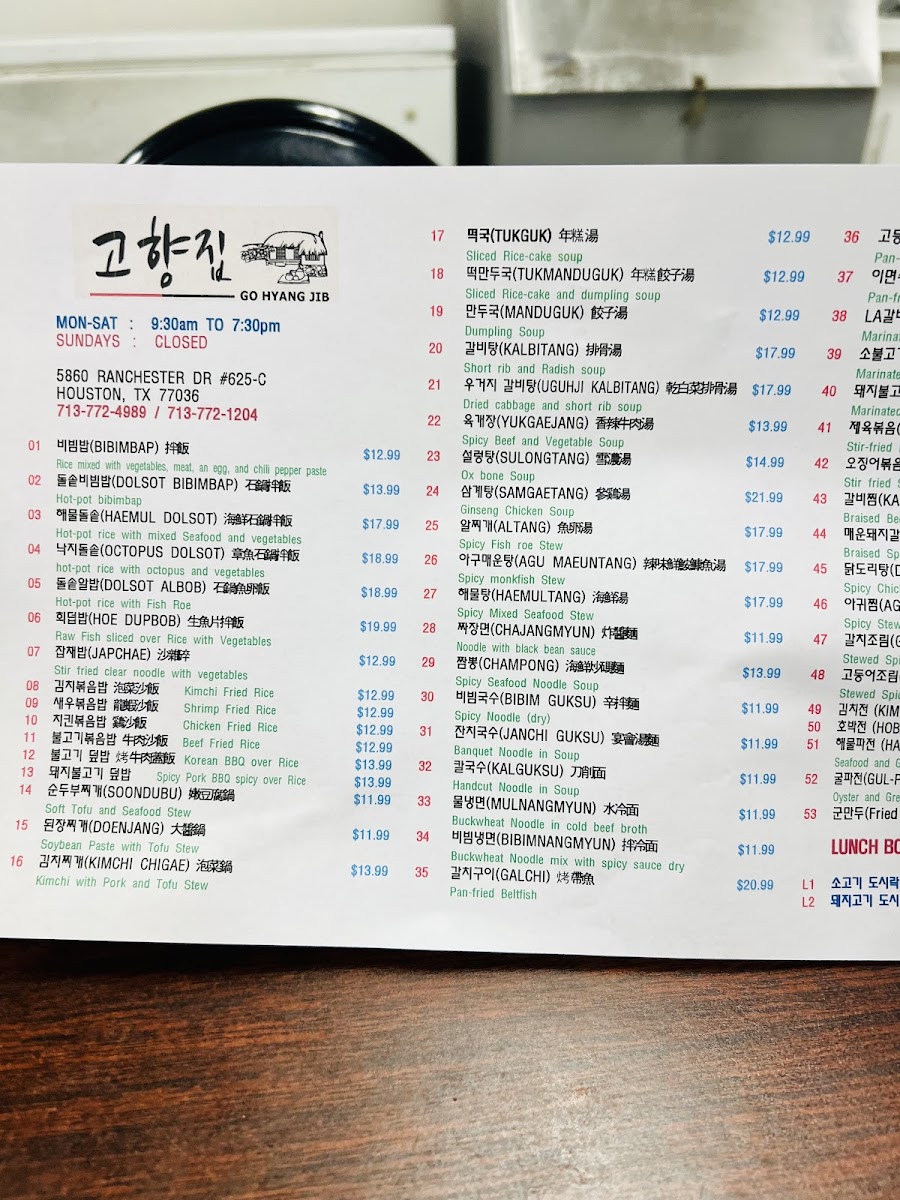 고향집
GO HYANG JIB
MON-SAT : 9:30am TO 7:30pm
SUNDAYS : CLOSED
5860 RANCHESTER DR #625-C
HOUSTON, TX 77036
713-772-4989 / 713-772-1204
01 비빔밥(BIBIMBAP) 拌飯 $12.99
Rice mixed with vegetables, meat, an egg, and chili pepper paste
02 돌솥비빔밥(DOLSOT BIBIMBAP) 石鍋拌飯 $13.99
Hot-pot bibimbap
03 해물돌솥(HAEMUL DOLSOT) 海鮮石鍋拌飯 $17.99
Hot-pot rice with mixed Seafood and vegetables
04 낙지돌솥(OCTOPUS DOLSOT) 章魚石鍋拌飯 $18.99
hot-pot rice with octopus and vegetables
05 돌솥알밥(DOLSOT ALBOB) 石鍋魚卵飯 $18.99
Hot-pot rice with Fish Roe
06 회덥밥(HOE DUPBOB) 生魚片拌飯 $19.99
Raw Fish sliced over Rice with Vegetables
07 잡채밥(JAPCHAE) 沙雜碎 $12.99
Stir fried clear noodle with vegetables
08 김치볶음밥 泡菜沙飯 Kimchi Fried Rice $12.99
09 새우볶음밥 龍蝦沙飯 Shrimp Fried Rice $12.99
10 치킨볶음밥 鷄沙飯 Chicken Fried Rice $12.99
11 불고기볶음밥 牛肉沙飯 Beef Fried Rice $12.99
12 불고기 덮밥 烤牛肉蒸飯 Korean BBQ over Rice $13.99
13 돼지불고기 덮밥 Spicy Pork BBQ spicy over Rice $13.99
14 순두부찌개(SOONDUBU) 嫩豆腐鍋 $11.99
Soft Tofu and Seafood Stew
15 된장찌개(DOENJANG) 大醬鍋 $11.99
Soybean Paste with Tofu Stew
16 김치찌개(KIMCHI CHIGAE) 泡菜鍋 $13.99
Kimchi with Pork and Tofu Stew
17 떡국(TUKGUK) 年糕湯 $12.99
Sliced Rice-cake soup
18 떡만두국(TUKMANDUGUK) 年糕餃子湯 $12.99
Sliced Rice-cake and dumpling soup
19 만두국(MANDUGUK) 餃子湯 $12.99
Dumpling Soup
20 갈비탕(KALBITANG) 排骨湯 $17.99
Short rib and Radish soup
21 우거지 갈비탕(UGUHJI KALBITANG) 乾白菜排骨湯 $17.99
Dried cabbage and short rib soup
22 육개장(YUKGAEJANG) 香辣牛肉湯 $13.99
Spicy Beef and Vegetable Soup
23 설렁탕(SULONGTANG) 雪濃湯 $14.99
Ox bone Soup
24 삼계탕(SAMGAETANG) 參鷄湯 $21.99
Ginseng Chicken Soup
25 알찌개(ALTANG) 魚卵湯 $17.99
Spicy Fish roe Stew
26 아구매운탕(AGU MAEUNTANG) $17.99
Spicy monkfish Stew
27 해물탕(HAEMULTANG) 海鮮湯 $17.99
Spicy Mixed Seafood Stew
28 짜장면(CHAJANGMYUN) 炸醬麵 $11.99
Noodle with black bean sauce
29 짬뽕(CHAMPONG) $13.99
Spicy Seafood Noodle Soup
30 비빔국수(BIBIM GUKSU) 辛拌麵 $11.99
Spicy Noodle (dry)
31 잔치국수(JANCHI GUKSU) 宴會湯麵 $11.99
Banquet Noodle in Soup
32 칼국수(KALGUKSU) 刀削面 $11.99
Handcut Noodle in Soup
33 물냉면(MULNANGMYUN) 水冷面 $11.99
Buckwheat Noodle in cold beef broth
34 비빔냉면(BIBIMNANGMYUN) 拌冷面 $11.99
Buckwheat Noodle mix with spicy sauce dry
35 갈치구이(GALCHI) 烤帶魚 $20.99
Pan-fried Beltfish
36
Pan-
37 이면
Pan-fr
38 LA갈비
Marinat
39 소불고기
Marinate
40 돼지불고
Marinated
41 제육볶음(
Stir-fried
42 오징어볶음
Stir fried S
43 갈비찜(KA
Braised Be
44 매운돼지갈
Braised Sp
45 닭도리탕(D
Spicy Chic
46 아귀찜(AG
Spicy Stew
47 갈치조림(G
Stewed Spi
48 고등어조림(
Stewed Spic
49 김치전 (KIM
50 호박전 (HOB
51 해물파전 (HA
Seafood and G
52 굴파전(GUL-P
Oyster and Gre
53 군만두(Fried
LUNCH BO
L1 소고기 도시락
L2 돼지고기 도시